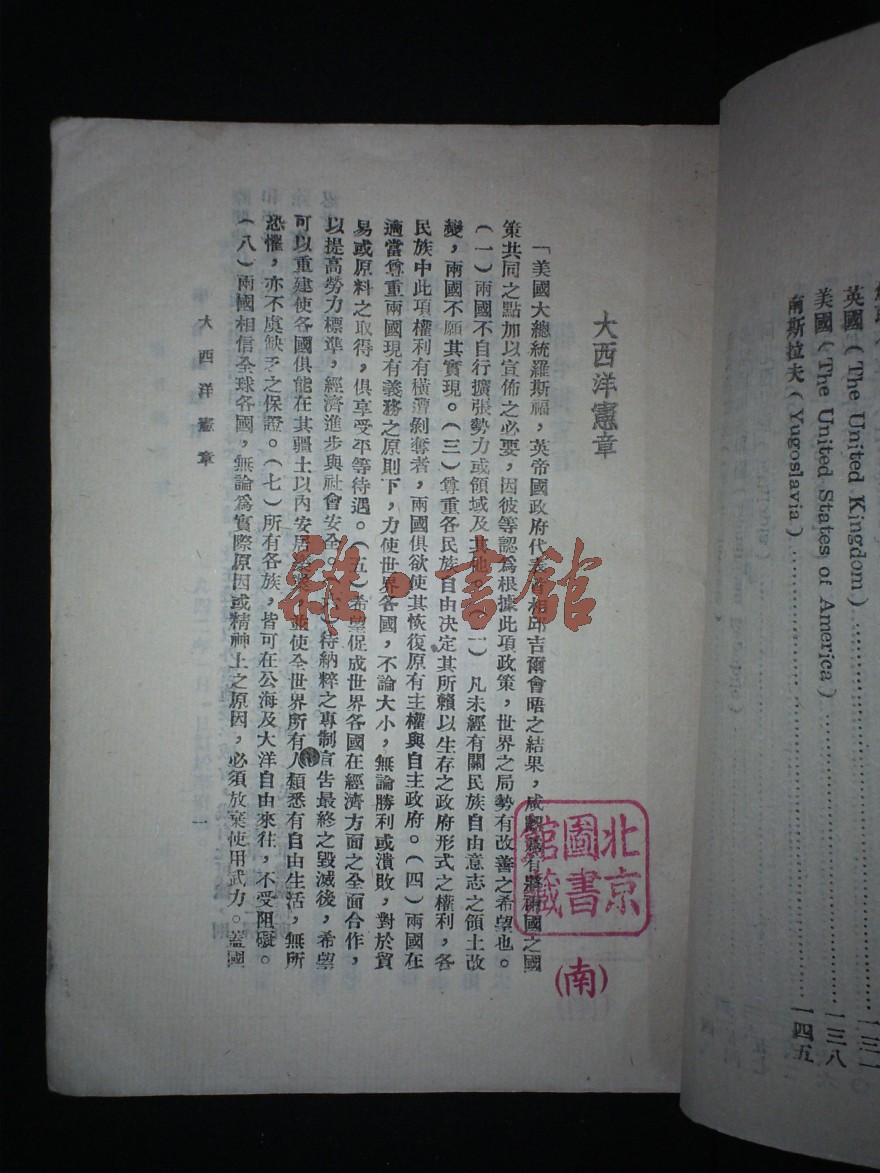 英國（The United Kingdom）……………………一三一
美國（The United States of America）……………………一三八
南斯拉夫（Yugoslavia）……………………一四五
大西洋憲章
「美國大總統羅斯福，英帝國政府代表首相邱吉爾會晤之結果，咸認爲有將兩國之國
策共同之點加以宣佈之必要，因彼等認爲根據此項政策，世界之局勢有改善之希望也。
（一）兩國不自行擴張勢力或領域及其他。（二）凡未經有關民族自由意志之領土改
變，兩國不願其實現。（三）尊重各民族自由決定其所賴以生存之政府形式之權利，各
民族中此項權利有橫遭剝奪者，兩國俱欲使其恢復原有主權與自主政府。（四）兩國在
適當尊重兩國現有義務之原則下，力使世界各國，不論大小，無論勝利或潰敗，對於貿
易或原料之取得，俱享受平等待遇。（五）希望促成世界各國在經濟方面之全面合作，
以提高勞力標準，經濟進步與社會安全。（六）待納粹之專制宣告最終之毀滅後，希望
可以重建使各國俱能在其疆土以內安居，並使全世界所有人類悉有自由生活，無所
恐懼，亦不虞缺乏之保證。（七）所有各族，皆可在公海及大洋自由來往，不受阻礙。
（八）兩國相信全球各國，無論爲實際原因或精神上之原因，必須放棄使用武力。蓋國
大西洋憲章
一
北京圖書館藏
（南）
雜·書館